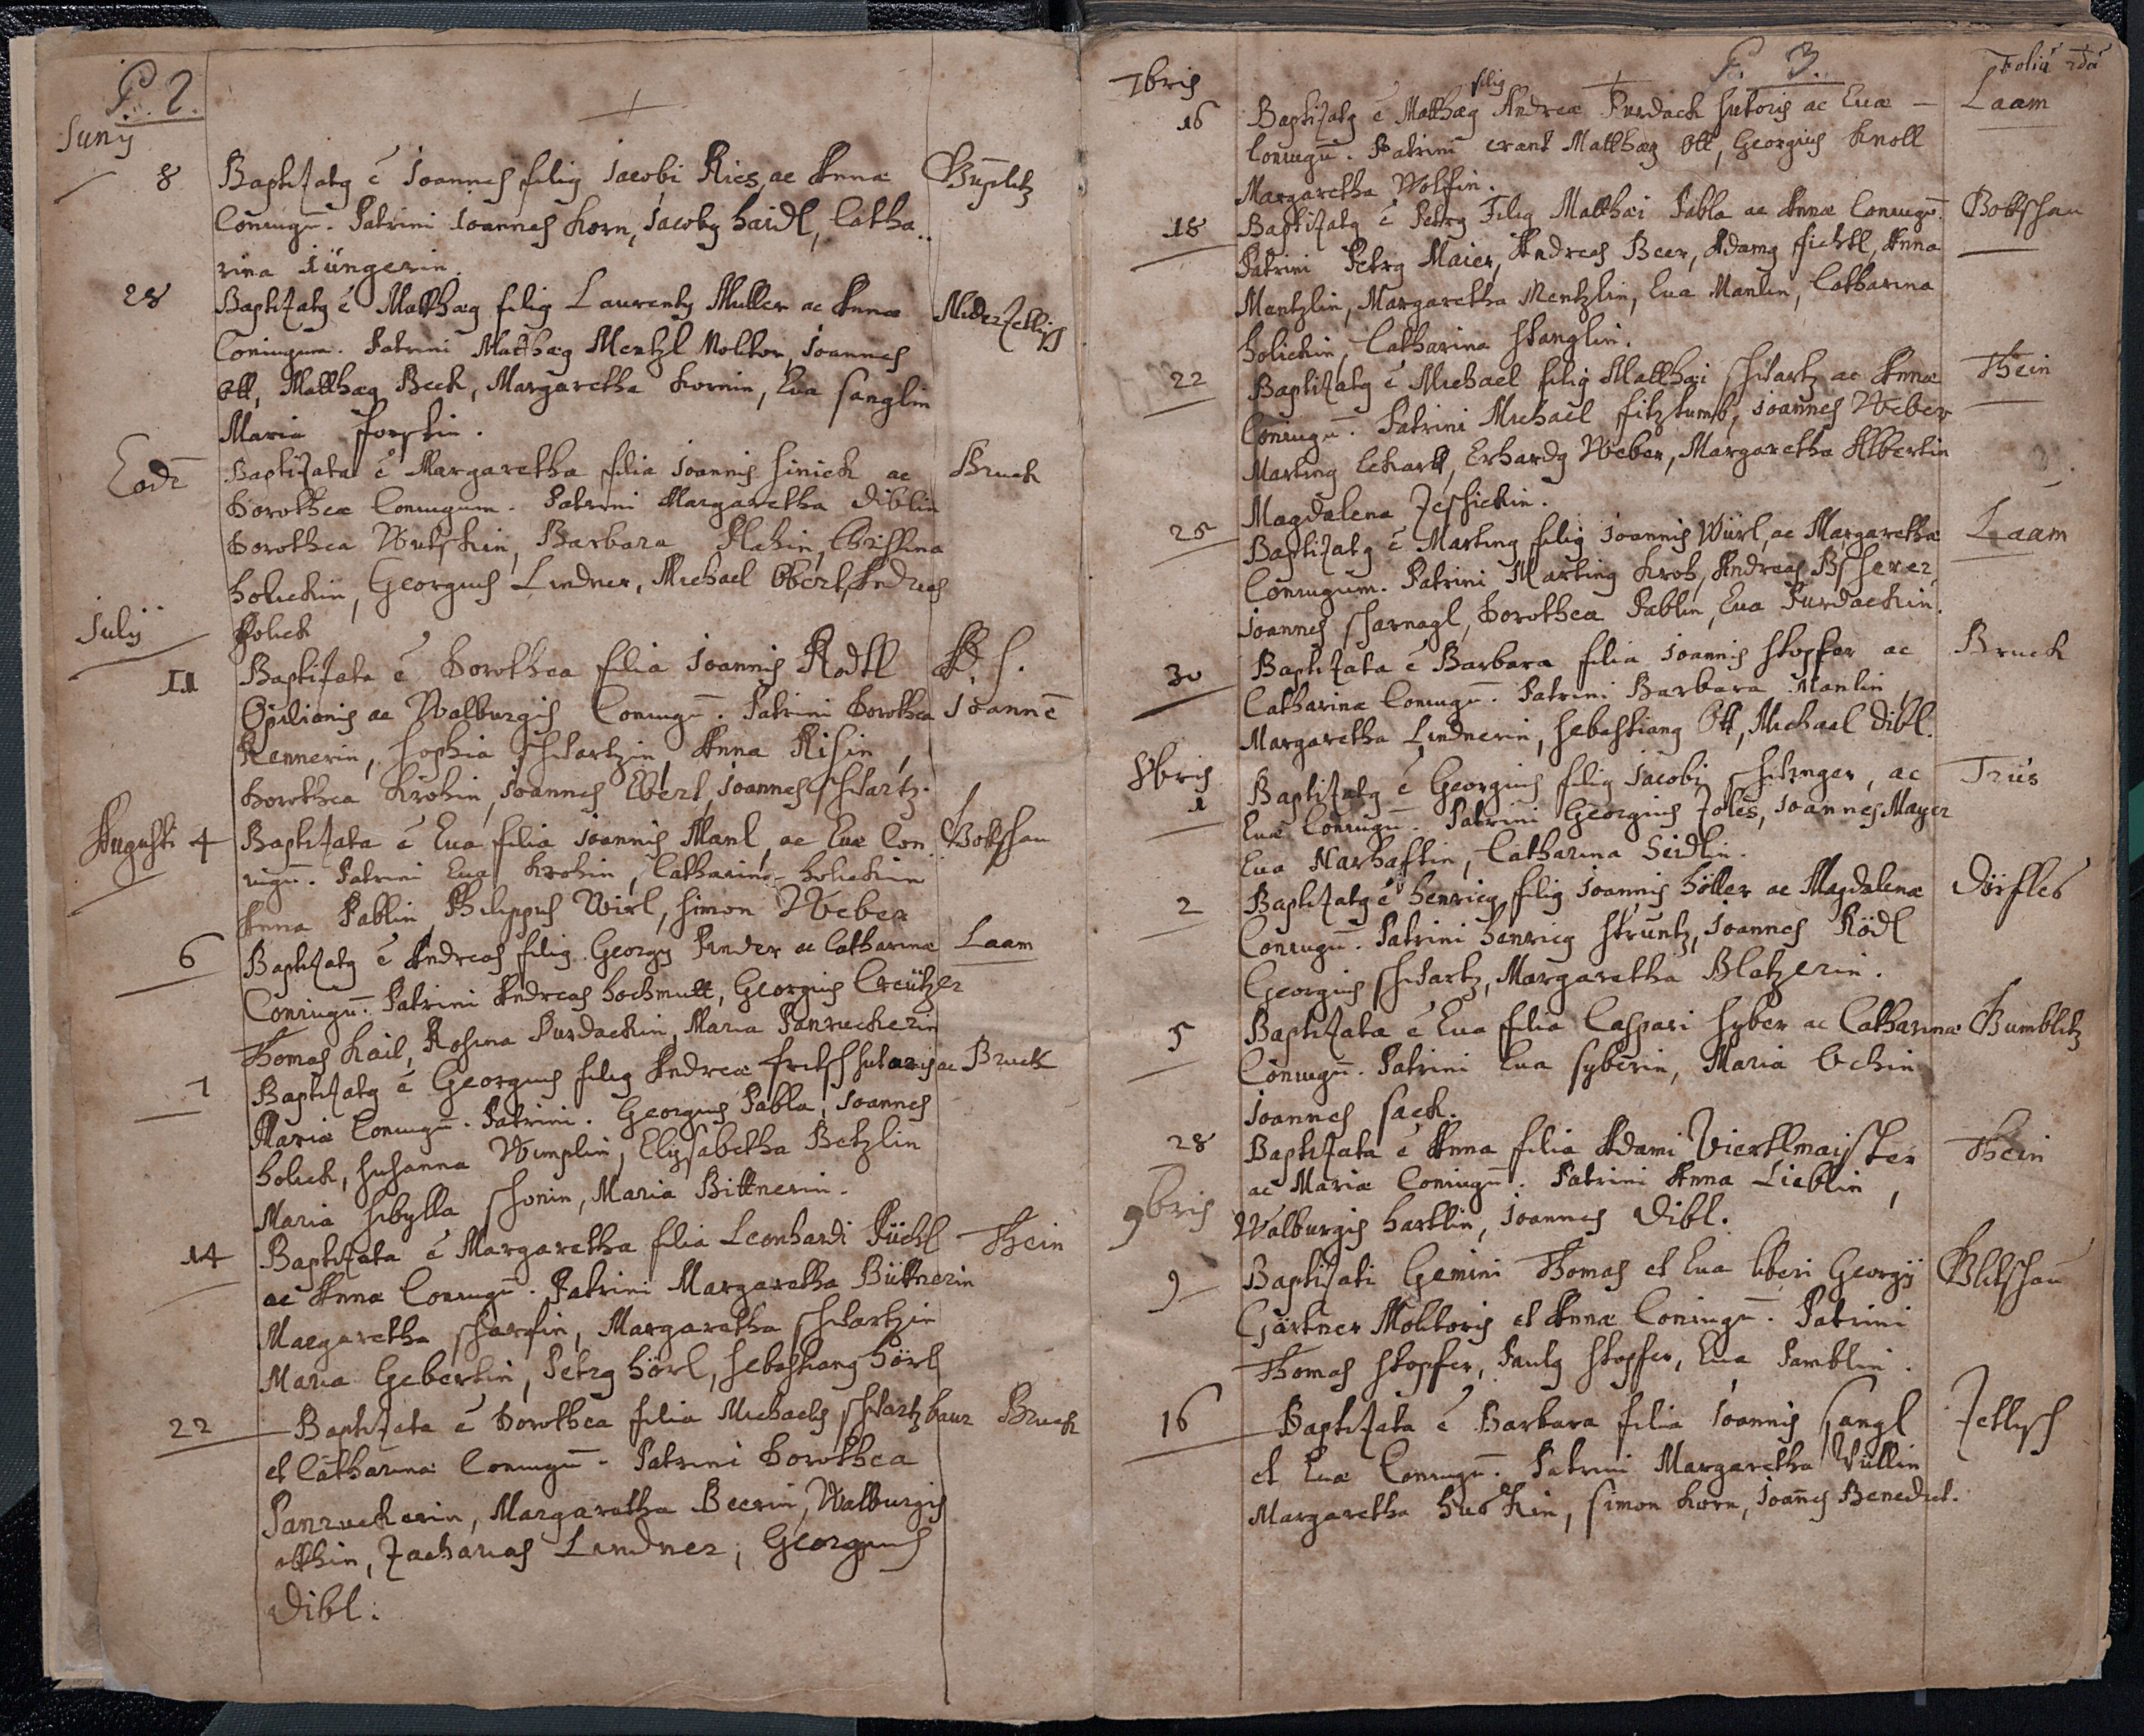 P. 2.
Junij
8 Baptizatg ē Joannes filig Jacobi Ries, ac Annæ
Coniugū. Patrini Joannes Korn, Jacobg Haidl, Catha..
rina Jüngerin.
28 Baptizatg ē Matthæg filig Laurentij Muller ac Annæ
Coniugum. Patrini Matthæg Mentzl Molitor, Joannes
Ott, Matthæg Beck, Margaretha Kornin, Eua Sanglin
Maria Forstin.
Eodē Baptizata ē Margaretha filia Joannis Hinick ac Bruck
Dorotheæ Coniugum. Patrini Margaretha Diblin
Dorothea Wutskin, Barbara Plahin, Christina
Holickin, Georgius Lindner, Michael Obert, Andreas
Holick
Julij
11 Baptizata ē Dorothea filia Joannis Rödtl
Opilionis ac Walburgis Coniugū. Patrini Dorothea Joannē
Rennerin, Sophia Schwartzin, Anna Risin,
Dorothea Krohin, Joannes Ebert, Joannes Schwartz.
Augusti 4 Baptizata ē Eua filia Joannis Manl, ac Euæ Con Gottschau
iugū. Patrini Eua Krohin, Catharina Holickin
Anna Pablin, Philippus Wirl, Simon Weber
6 Baptizatg ē Andreas filig Georgij Pinder ac Catharinæ Laam
Coniugū. Patrini Andreas Hochmutt, Georgius Creützer
Thomas Kail, Rosina Purdackin, Maria Panzuckerin
7 Baptizatg ē Georgius filig Andreæ Fritsch sutoris ac Bruck
Mariæ Coniugū. Patrini. Georgius Pabla, Joannes
Holick, Susanna Wimplin, Elisabetha Betzlin
Maria Sibylla Schonin, Maria Bittnerin.
14 Baptizata ē Margaretha filia Leonhardi Püchl Thein
ac Annæ Coniugū. Patrini Margaretha Büttnerin
Margaretha Scharfin, Margaretha Schwartzin
Maria Gebertin, Petrg Hörl, Sebastiang Hörl
22 Baptizata ē Dorothea filia Michaelis Schwartzbaur Bruck
et Catharinæ Coniugū. Patrini Dorothea
Panzuckerin, Margaretha Beerin, Walburgis
Otthin, Zacharias Lindner, Georgius
Dibl.
P. 3.
7bris
16 Baptizatg ē Matthæg filig Andreæ Purdack sutoris ac Euæ – Laam
Coniugū. Patrini erant Matthæg Ott, Georgius Knoll
Margaretha Wolfin.
18 Baptizatg ē Petrg Filig Matthæi Pabla ac Annæ Coniugū. Gottschau
Patrini Petrg Maier, Andreas Beer, Adamg Fichtl, Anna
Mentzlin, Margaretha Mentzlin, Eua Manlin, Catharina
Holickin, Catharina Stanglin.
22 Baptizatg ē Michael filig Matthæi Schwartz ac Annæ Thein
Coniugū. Patrini Michael Fitztumb, Joannes Weber
Marting Eckart, Erhardg Weber, Margaretha Albertin
Magdalena Zeschickin.
25 Baptizatg ē Marting filig Joannis Würl, ac Margarethæ Laam
Coniugum. Patrini Marting Kroh, Andreas Bscherer,
Joannes Scharnagl, Dorothea Pablin, Eua Purdackin.
30 Baptizata ē Barbara filia Joannis Stopfer ac Bruck
Catharinæ Coniugū. Patrini Barbara Manlin,
Margaretha Lindnerin, Sebastiang Ott, Michael Dibl.
8bris
1 Baptizatg ē Georgius filig Jacobi Schwinger, ac Triis
Euæ Coniugū. Patrini Georgius Zoles, Joannes Mayer
Eua Narhaftin, Catharina Heidlin.
2 Baptizatg ē Henricg filig Joannis Höller ac Magdalenæ Dörfles
Coniugū. Patrini Henricg Struntz, Joannes Rödl
Georgius Schwartz, Margaretha Blatzerin.
5 Baptizata ē Eua filia Caspari Syber ac Catharinæ Gumblitz
Coniugū. Patrini Eua Syberin, Maria Ochin
Joannes Sack.
28 Baptizata ē Anna filia Adami Viertlmaister Thein
ac Mariæ Coniugū. Patrini Anna Lieblin,
Walburgis Hartlin, Joannes Dibl.
9bris
9 Baptizati Gemini Thomas et Eua liberi Georgij
Gärtner Molitoris et Annæ Coniugū. Patrini
Thomas Stopfer, Paulg Stopfer, Eua Pamblin.
16 Baptizata ē Barbara filia Joannis Sangl Zetlisch
et Euæ Coniugū. Patrini Margaretha Vüllin
Margaretha Huskin, Simon Korn, Joānes Benedict.